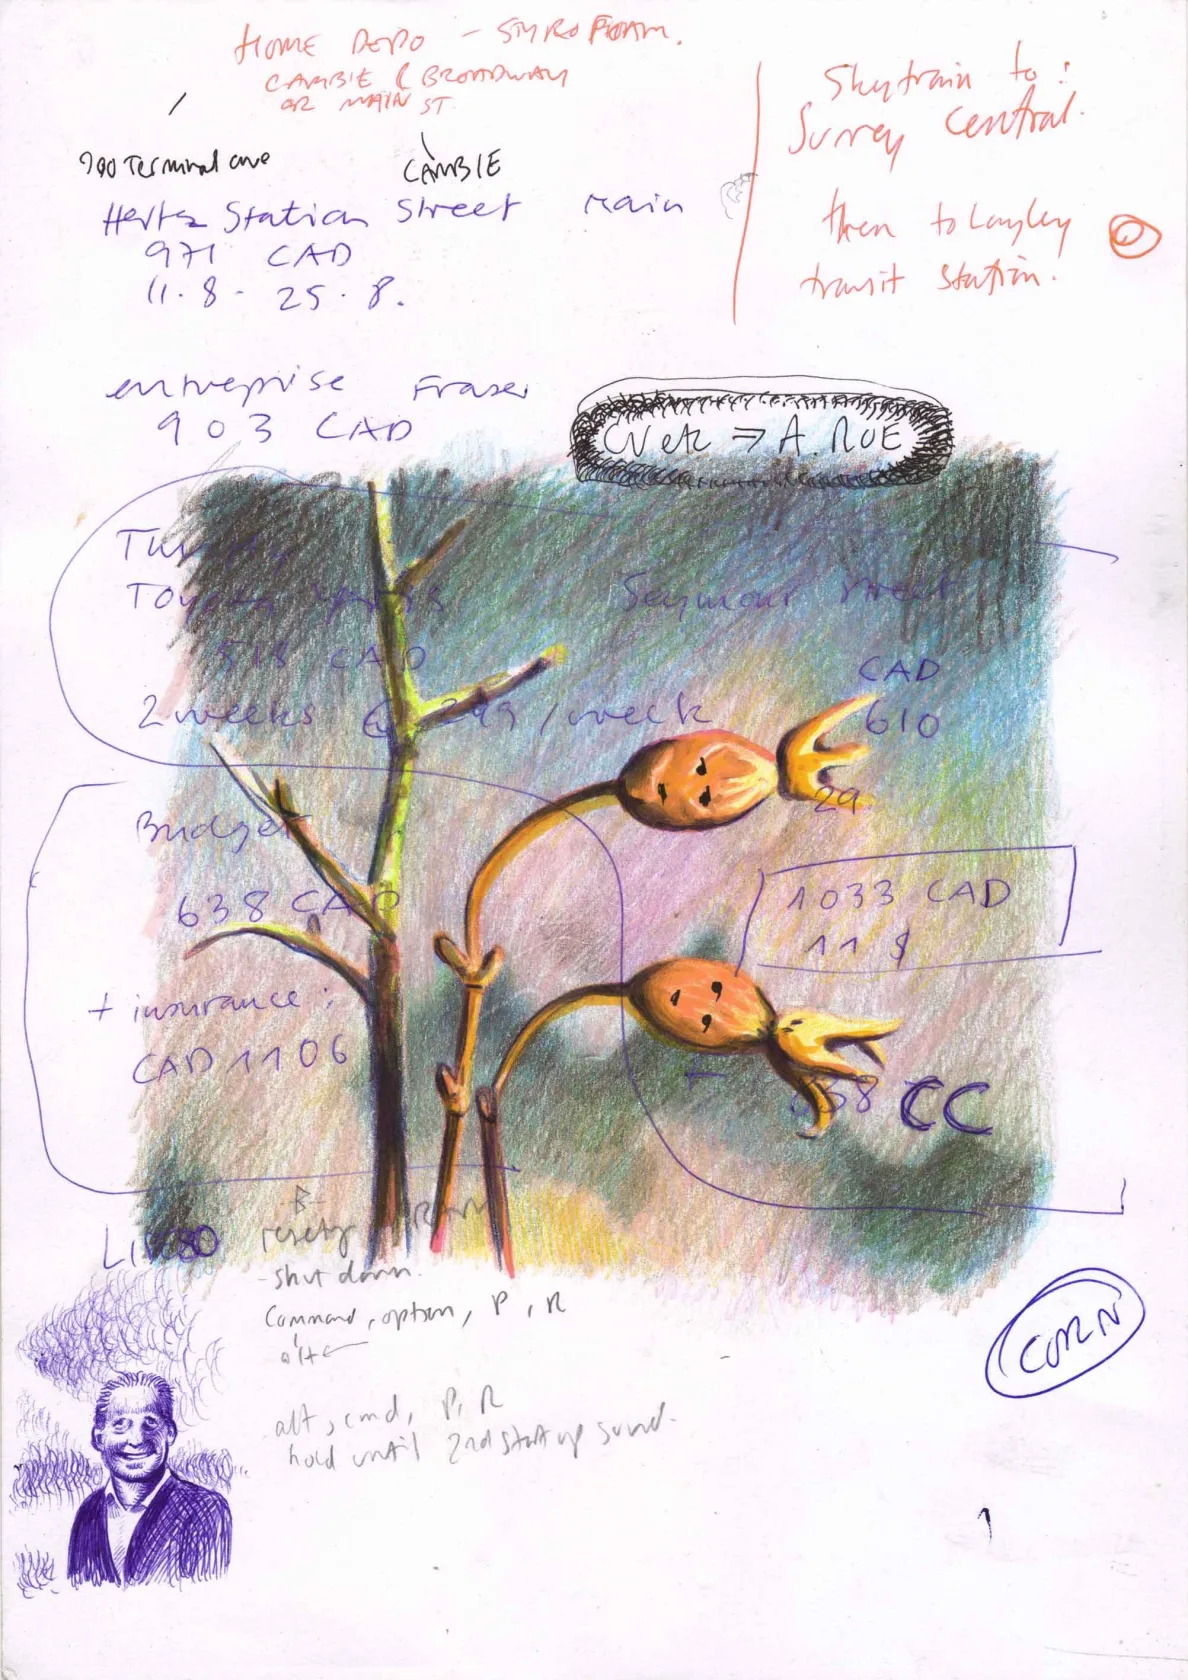 HOME DEPO - STYROFOAM.
CAMBIE & BROADWAY
OR MAIN ST.
Skytrain to:
Surrey Central.
then to Langley
transit station.
900 Terminal ave
CAMBIE
Hertz Station Street Main
971 CAD
11.8 - 25.8.
enterprise Fraser
903 CAD
A. ROE
Toyota Yaris Seymour street
518 CAD
CAD
2 weeks @ 249 /week
610
29
Budget
638 CAD
1033 CAD
118
+ insurance:
CAD 1106
638 CC
- shut down.
Command, option, P, R
alt
CORN
alt, cmd, P, R
hold until 2nd start up sound.
1